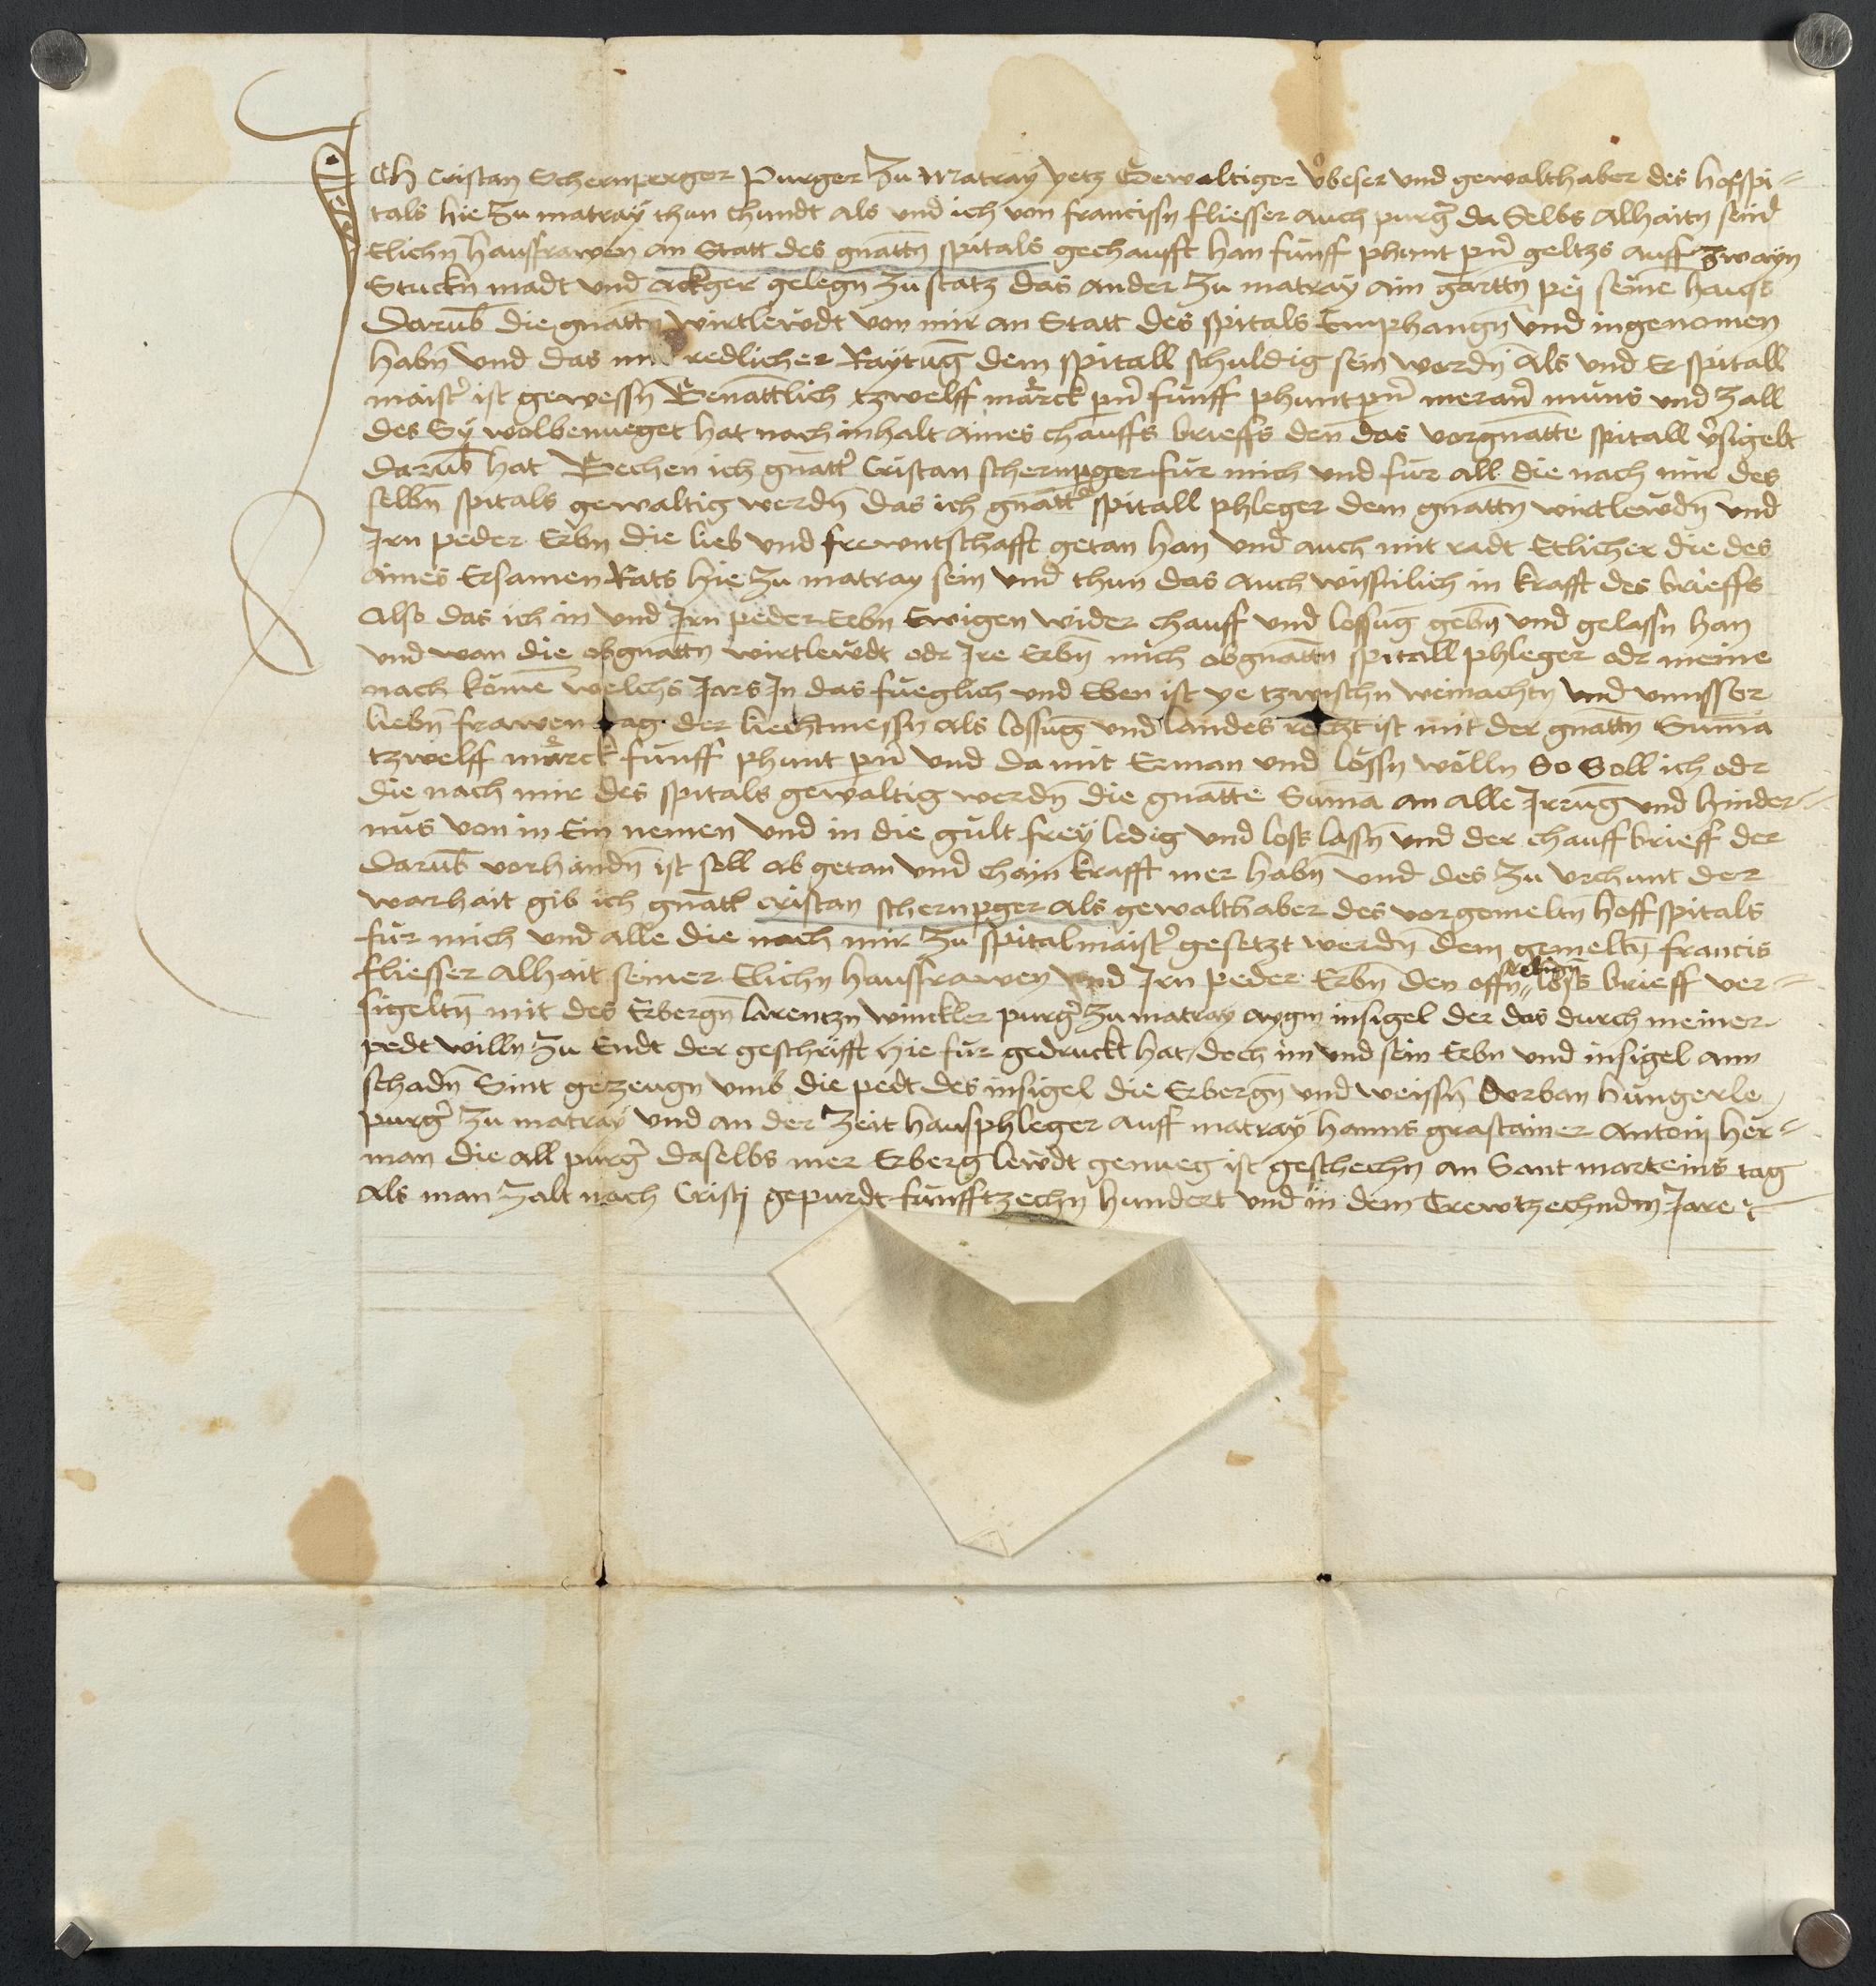 Ich Cristan Schernperger Purger Zu Matray yetz Gewaltiger v̊beser und gewalthaber des hofspi-
tals hie Zu matraÿ thun chundt als und ich von francissn fliesser auch purg̃ da Selbs Alhaitn̄ seind
Elichn̄ hausfrawen an Statt des gnāttn̄ spitals gechaufft han fünff phunt pn̄ geltzs auff zwayn
Stuckn̄ madt und Ackger gelegn̄ zu statz das ander Zu matraÿ ain garttn̄ peÿ seinē haus
Darūb die gnāttn̄ wirtlewdt von mir an Statt des spitals Emphangn̄ und ingenomen
habn̄ Und das redlicher Raytūg dem spitall schuldig sein wordn̄ Als und Er spitall
maist̾ ist gewessn̄ Benāttlich tzwelff marck pn̄ fünff phunt pn̄ meran̄ müns und Zall
des Sÿ wolbenueget hat nach inhalt Aines chauffs brieffs den das vorgnātte spitall v̾sigelt
darūb hat Bechen ich gnātt̾ Cristan schernpger für mich und für all die nach mir des
selbn̄ spitals gewaltig werdn̄ das ich gnātt̾ spitall phleger dem gnāttn̄ wirtlewdn̄ und
Irn peder Erbn̄ die lieb und frewntschafft getan han und auch mit radt Etlicher die des
Aines Ersamen Rats hie Zu matray sein und thun das Auch wissnlich in krafft des brieffs
Also das ich in und Irn peder Erbn Ewigen wider chauff und lossūg gebn̄ und gelassn han
und wan die obgnāttn̄ wirtlewdt odr Ire Erbn̄ mich obgnāttn̄ spitall phleger odr meine
nach komē welchs Jars In das fueglich und Eben ist ye tzwischn weinachtn̄ und unnsser
liebn̄ frawen tag der liechtmessn̄ als lossūg und landes recht ist mit der gnāttn̄ Suma
tzwelff marck fünff phunt pn̄ und da mit Erman und lössn wölln So Soll ich odr
die nach mir des spitals gewaltig werdn̄ die gnātte Suma an alle Irrūg und hinder-
nus von in Ein nemen und in die gült freÿ ledig und loss lassn̄ und der chauff brieff der
darūb vorhandn̄ ist sell ab getan und chain krafft mer habn̄ und des Zu urchunt der
warhait gib ich gnātt̾ cristan schernpger als gewalthaber des vorgemeltn̄ hoffspitals
für mich und alle die nach mir Zu spitalmaist̾ gesetzt werdn̄ dem gemeltn̄ francis
fliesser Alhait seiner Elichn̄ hausfrawen und Irn peder Erbn̄ den offn̄ loss brieff ver-
sigeltn̄ mit des Erbergn̄ larentzn winckler purg̾ Zu matray aygn̄ insigel der das durch meiner
pedt willn̄ Zu Endt der geschrifft hie für gedruckt hat doch im und sein Erbn und insigel ann
schadn̄ Sint getzeugn umb die pedt des insigel die Erbergn̄ und weissn̄ Vrban hüngerle
purg̾ Zu matraÿ und an der Zeit hausphleger auff matraÿ hanns grastainer Antonj her-
man die all purg̾ daselbs mer Erberg lewdt genueg ist geschechn an Sant marteins tag
Als man Zalt nach Cristj gepurdt fünfftzechn hundert und in dem Drewtzechndn Jare